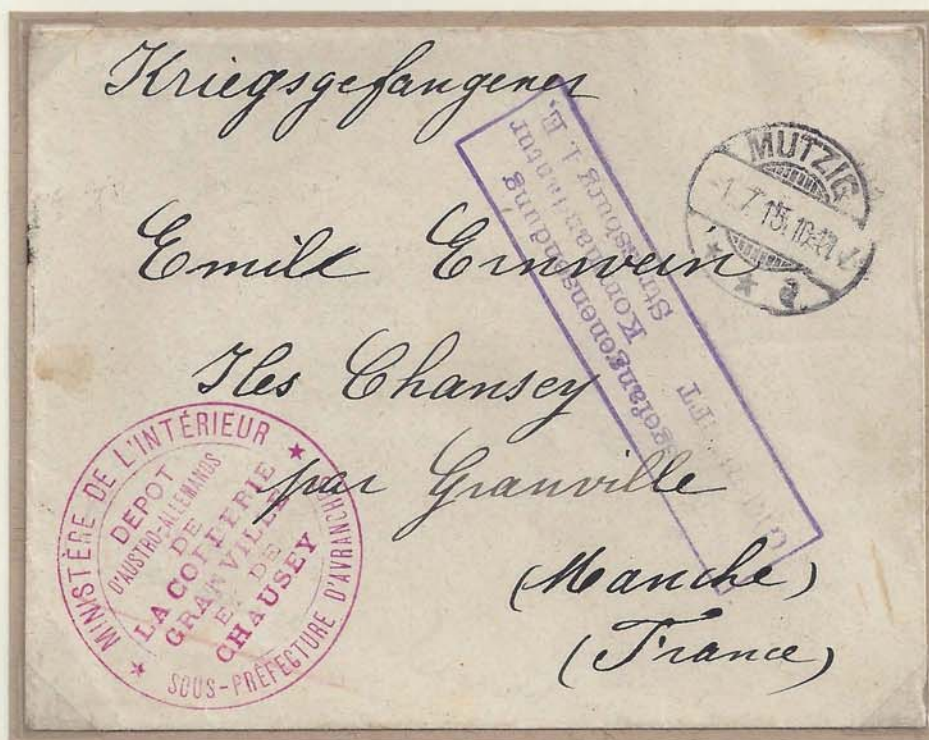 Kriegsgefangener
Emile Ernwein
Iles Chansey
par Granville
(Manche)
(France)
MUTZIG
-1.7.15.10-11V
* a
gefangenensendung
Kommandantur
Strassburg i. E.
MINISTÈRE DE L'INTÉRIEUR
SOUS-PRÉFECTURE D'AVRANCHES
DEPOT
D'AUSTRO-ALLEMANDS
DE
LA
GRANVILLE
ET DE
CHAUSEY